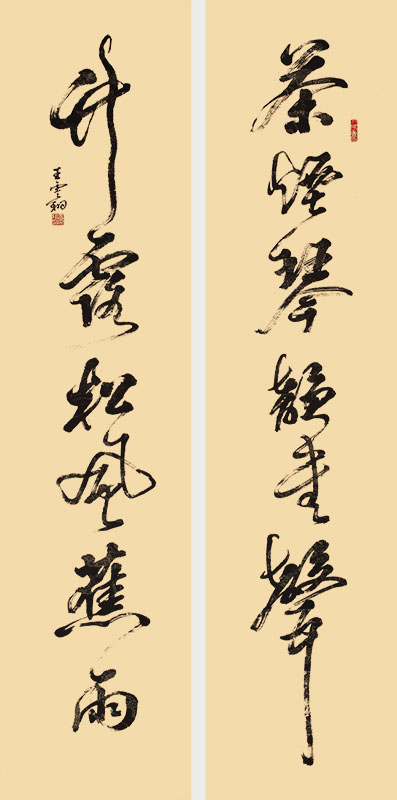 茶煙琴韻書聲
竹露松風蕉雨
王雲